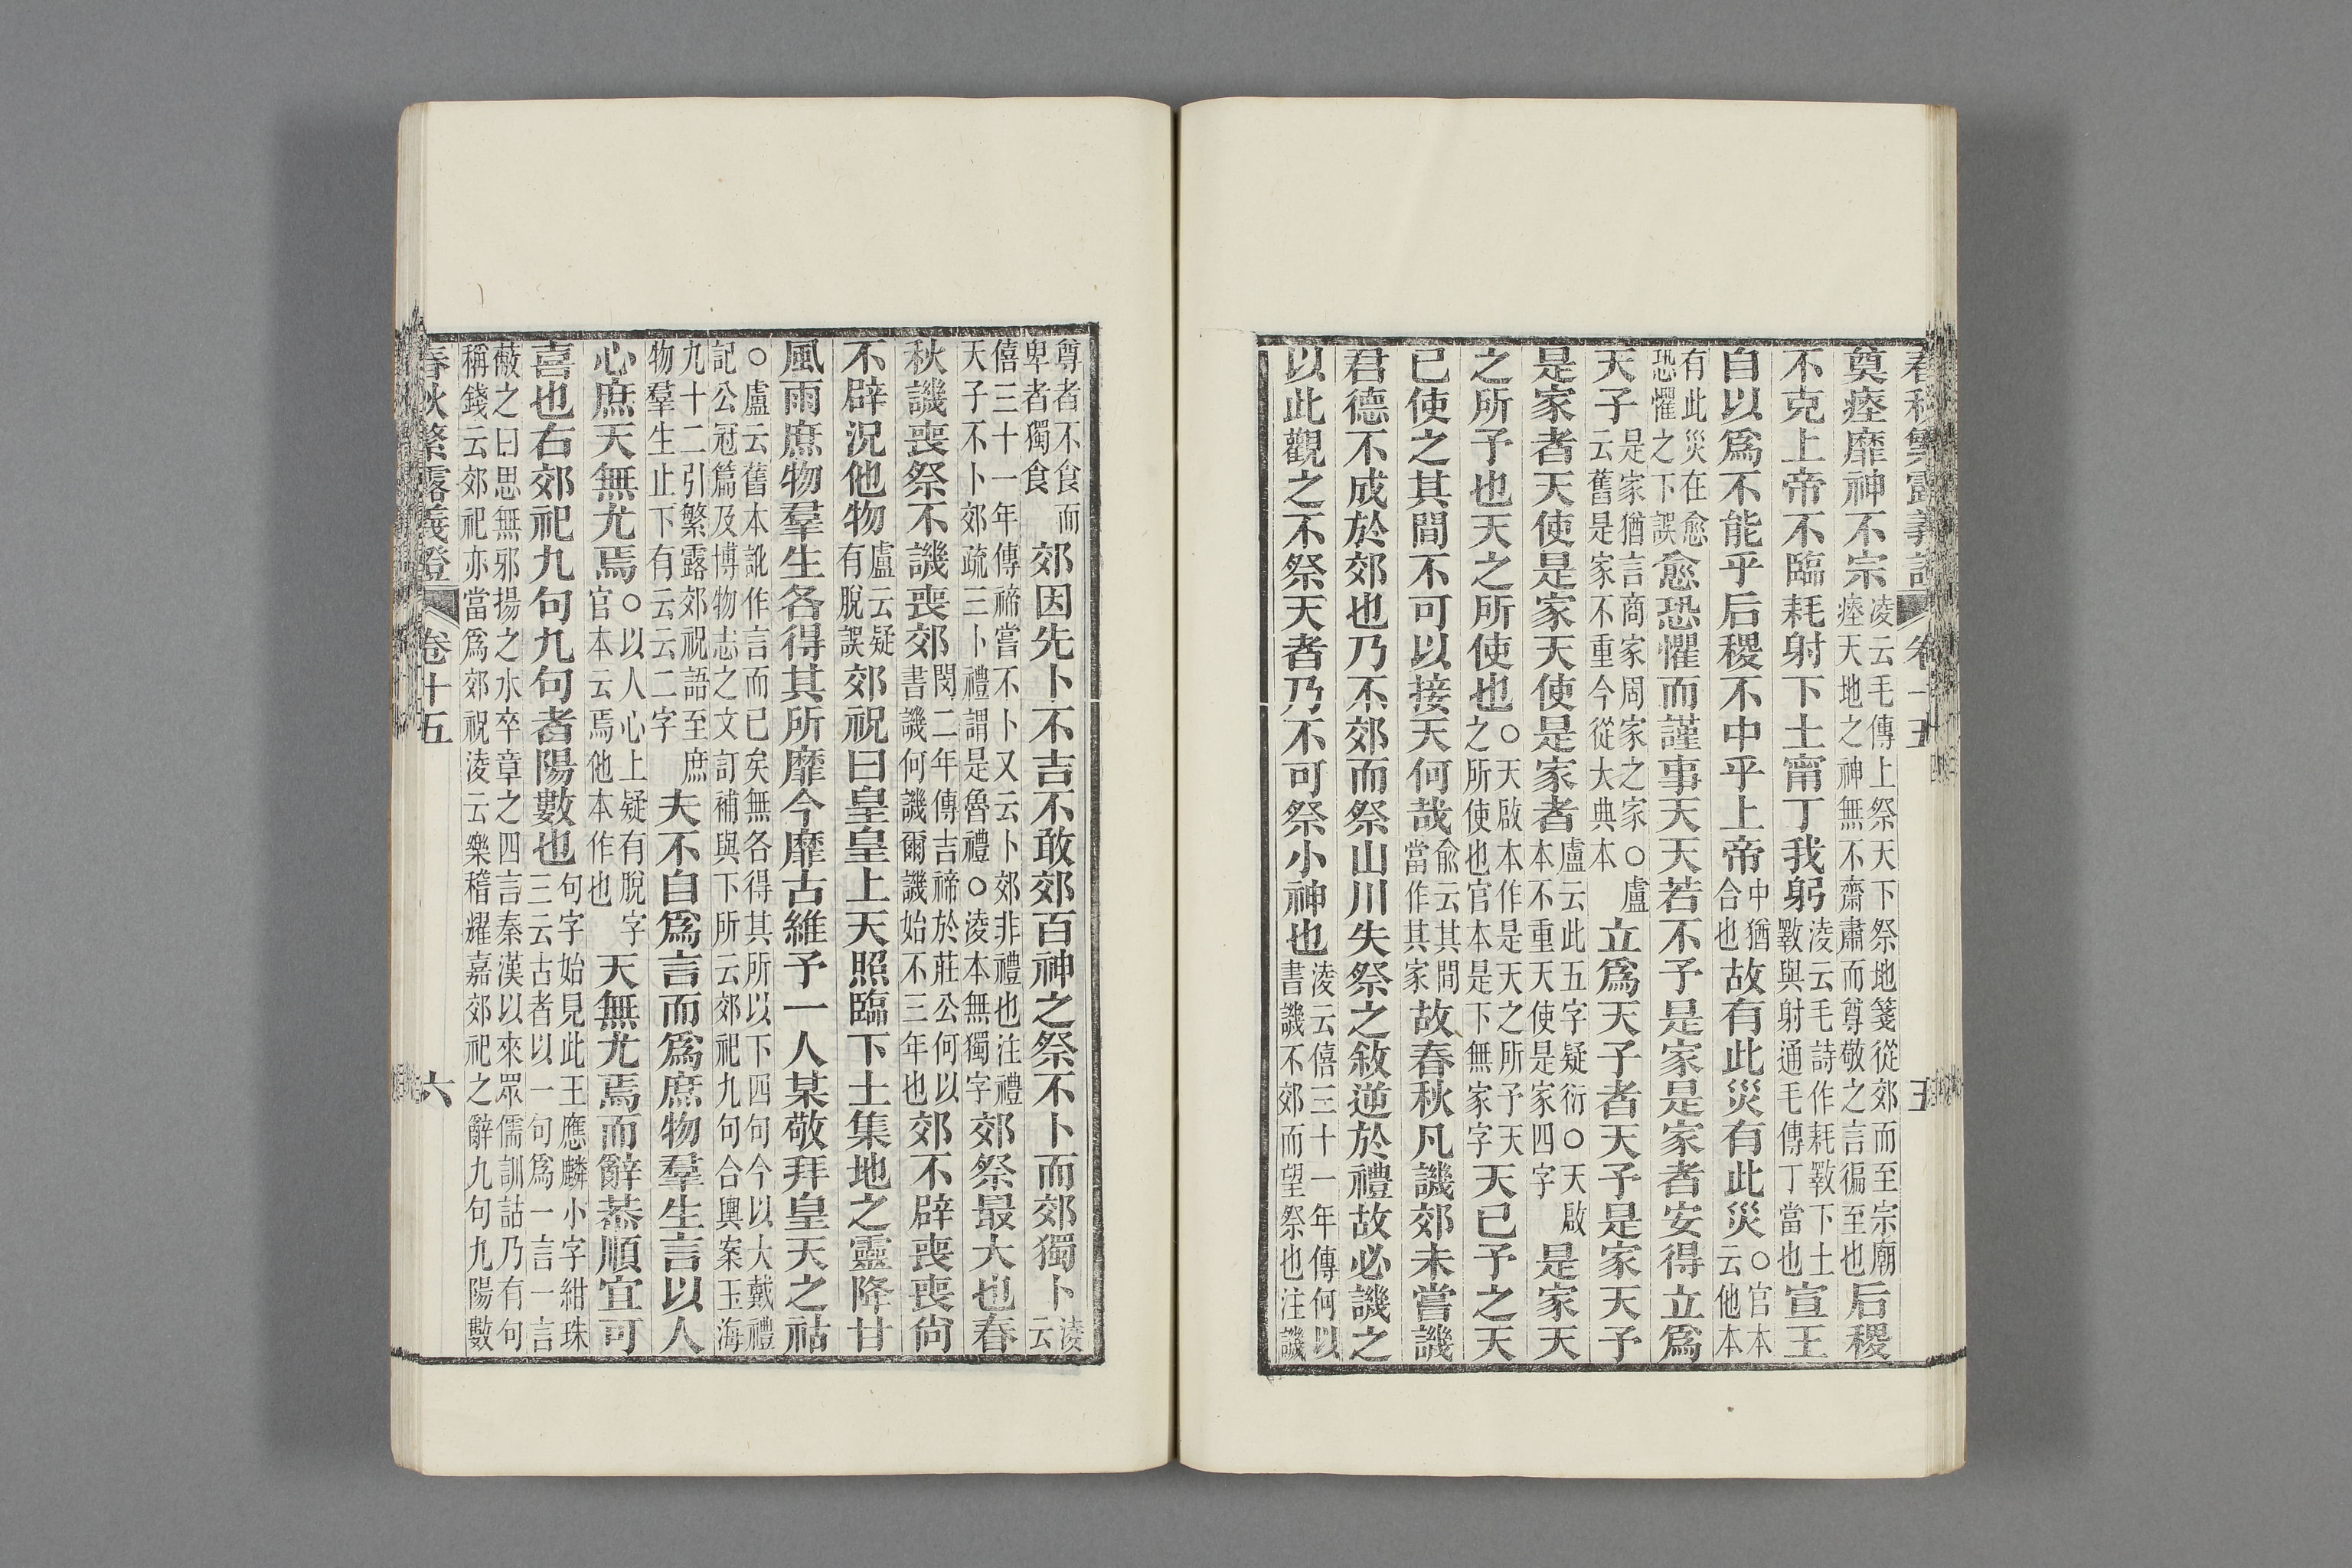 春秋繁露義證 卷十五 五
奠瘞靡神不宗凌云毛傳上祭天下祭地箋從郊而至宗廟瘞天地之神無不齋肅而尊敬之言徧至也后稷
不克上帝不臨耗射下土甯丁我躬凌云毛詩作耗斁下土斁與射通毛傳丁當也宣王
自以爲不能乎后稷不中乎上帝中猶合也故有此災有此災〇官本云他本
有此災在愈恐懼之下誤愈恐懼而謹事天天若不予是家是家者安得立爲
天子是家猶言商家周家之家〇盧云舊是家不重今從大典本立爲天子者天予是家天予
是家者天使是家天使是家者盧云此五字疑衍〇天啟本不重天使是家四字是家天
之所予也天之所使也〇天啟本作是天之所予天之所使也官本是下無家字天已予之天
已使之其間不可以接天何哉俞云其間當作其家故春秋凡譏郊未嘗譏
君德不成於郊也乃不郊而祭山川失祭之敘逆於禮故必譏之
以此觀之不祭天者乃不可祭小神也凌云僖三十一年傳何以書譏不郊而望祭也注譏
尊者不食而卑者獨食郊因先卜不吉不敢郊百神之祭不卜而郊獨卜凌云
僖三十一年傳禘嘗不卜又云卜郊非禮也注禮天子不卜郊疏三卜禮謂是魯禮〇凌本無獨字郊祭最大也春
秋譏喪祭不譏喪郊閔二年傳吉禘於莊公何以書譏何譏爾譏始不三年也郊不辟喪喪尙
不辟況他物盧云疑有脫誤郊祝曰皇皇上天照臨下土集地之靈降甘
風雨庶物羣生各得其所靡今靡古維予一人某敬拜皇天之祜
〇盧云舊本訛作言而已矣無各得其所以下四句今以大戴禮記公冠篇及博物志之文訂補與下所云郊祀九句合輿案玉海
九十二引繁露郊祝語至庶物羣生止下有云云二字夫不自爲言而爲庶物羣生言以人
心庶天無尤焉〇以人心上疑有脫字官本云焉他本作也天無尤焉而辭恭順宜可
喜也右郊祀九句九句者陽數也句字始見此王應麟小字紺珠三云古者以一句爲一言一言
蔽之曰思無邪揚之水卒章之四言秦漢以來眾儒訓詁乃有句稱錢云郊祀亦當爲郊祝淩云樂稽耀嘉郊祀之辭九句九陽數
春秋繁露義證 卷十五 六